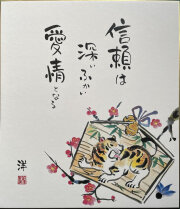 信頼は
深いふかい
愛情となる
洋